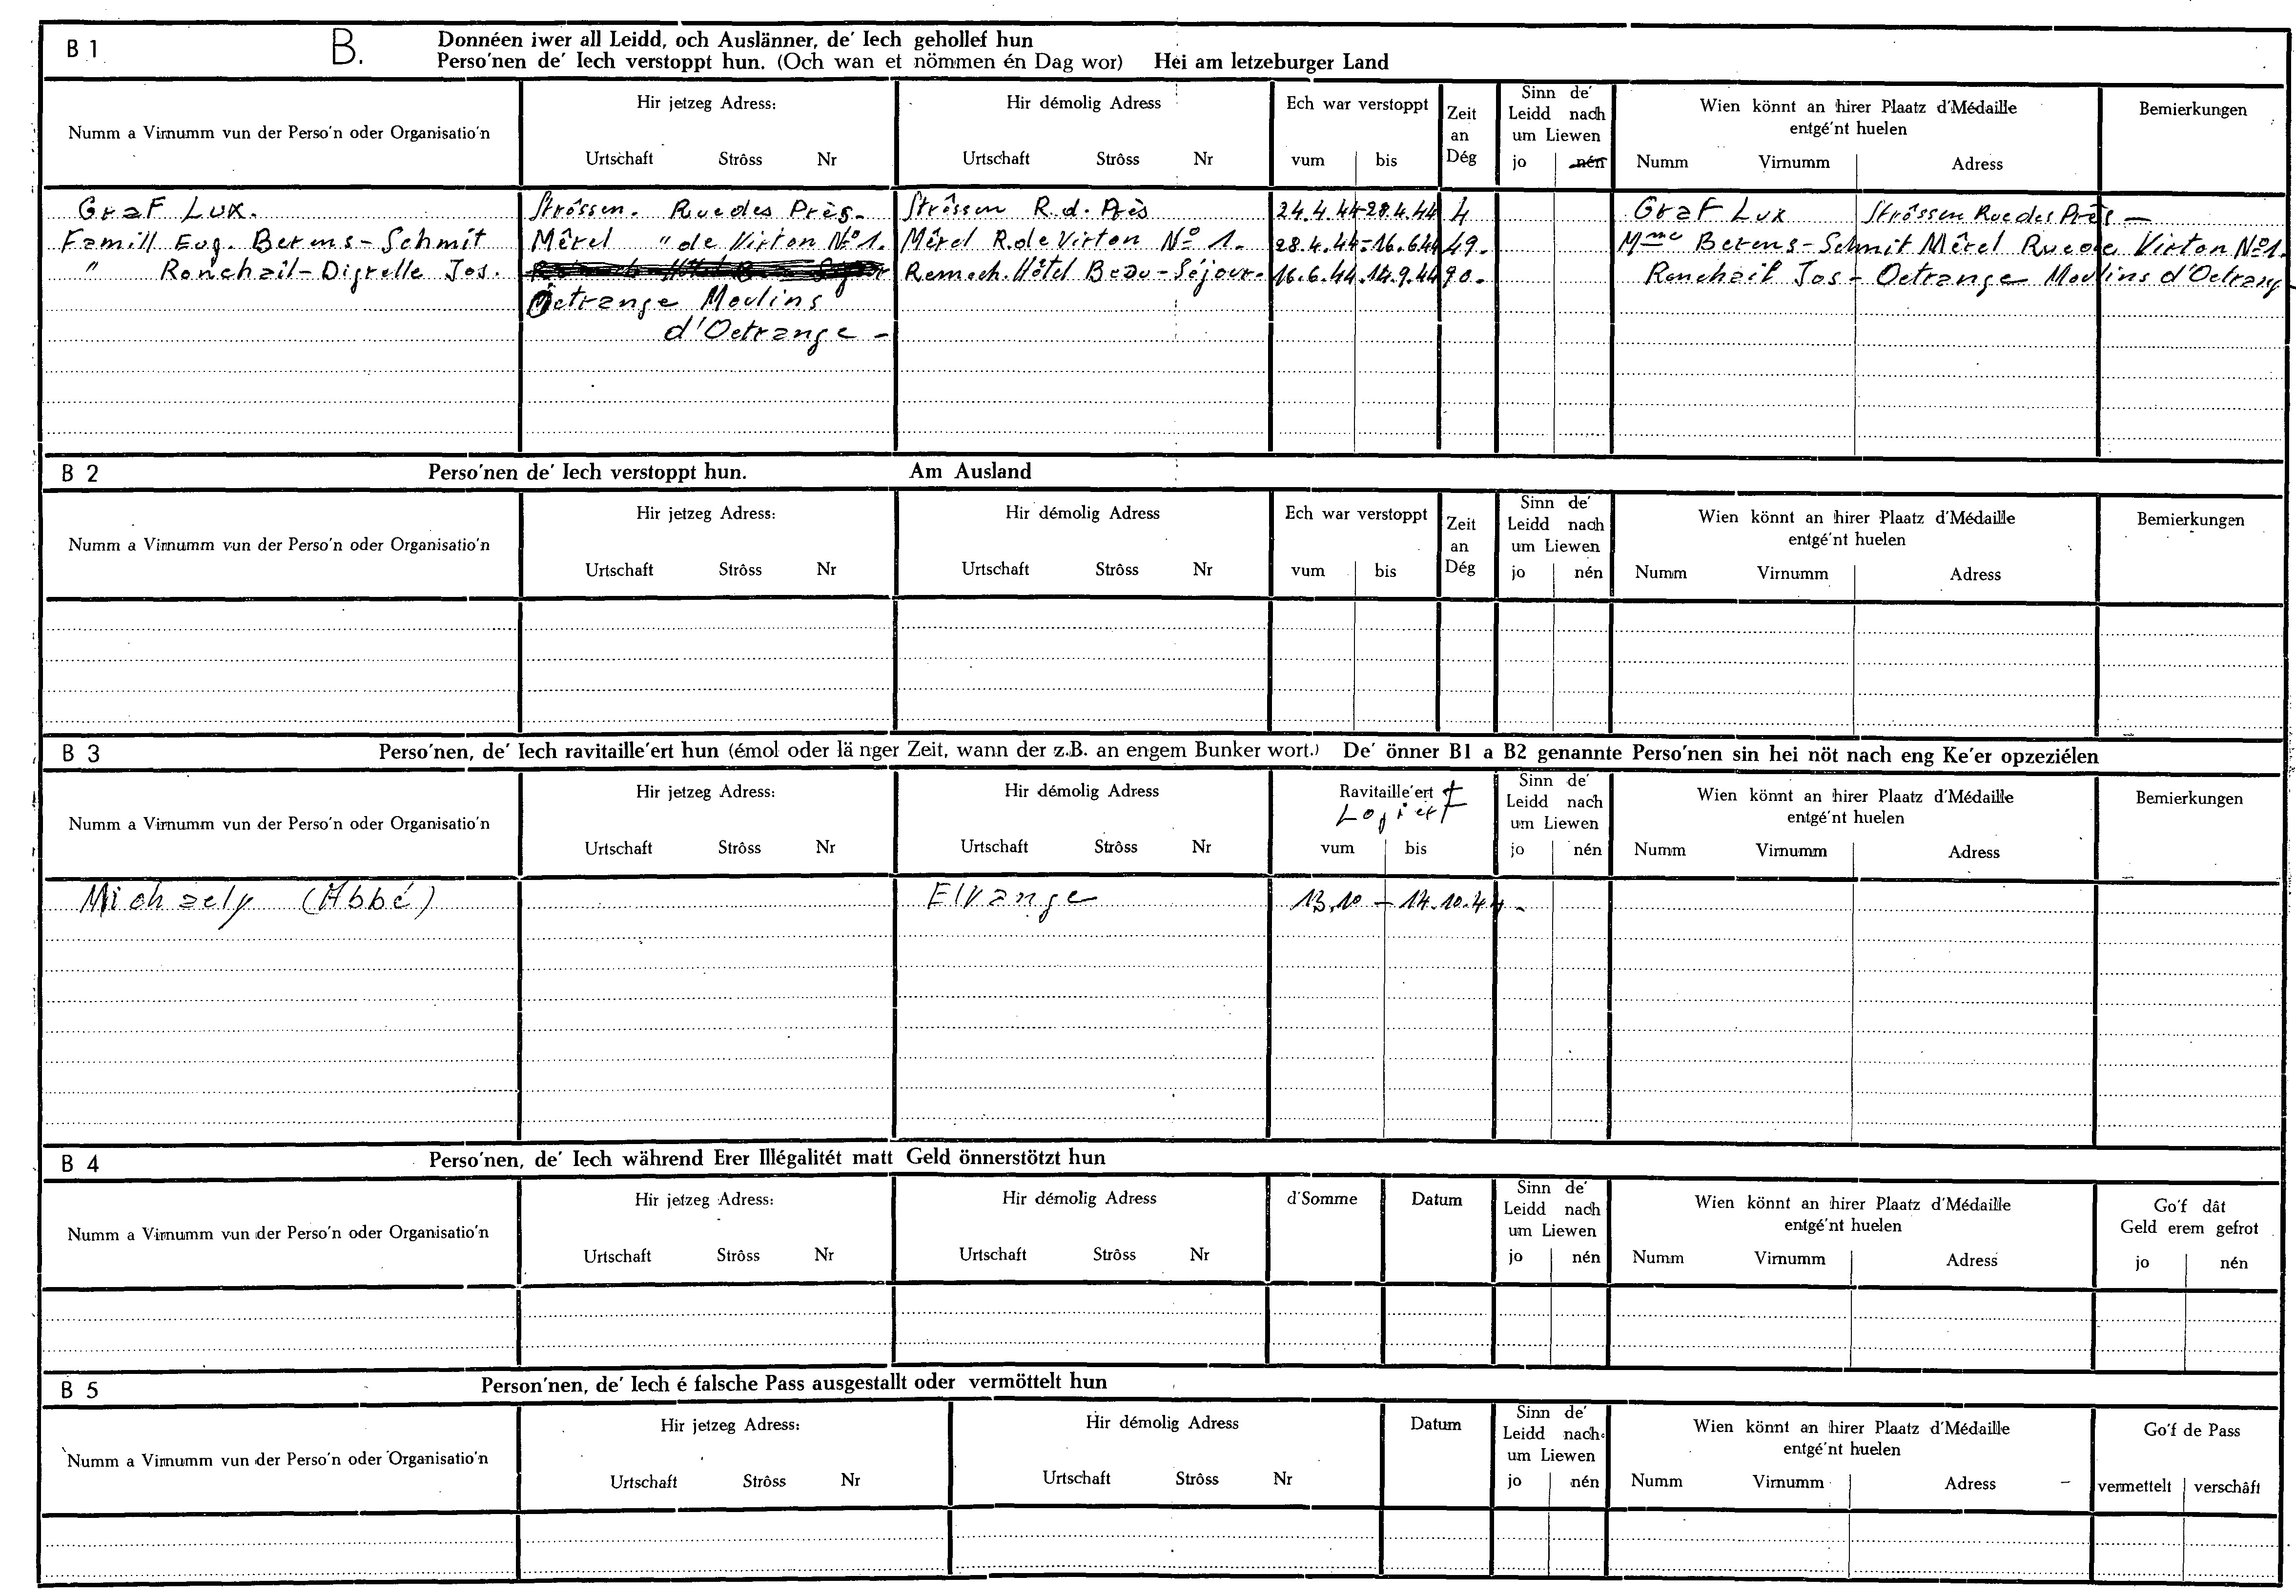 B 1 B. Donnéen iwer all Leidd, och Auslänner, de' Iech gehollef hun
Perso'nen de' Iech verstoppt hun. (Och wan et nömmen én Dag wor) Hei am letzeburger Land
Numm a Virnumm vun der Perso'n oder Organisatio'n
Hir jetzeg Adress:
Urtschaft Strôss Nr
Hir démolig Adress
Urtschaft Strôss Nr
Ech war verstoppt
vum bis
Zeit
an
Dég
Sinn de'
Leidd nach
um Liewen
jo nén
Wien könnt an hirer Plaatz d'Médaille
entgé'nt huelen
Numm Virnumm Adress
Bemierkungen
Graf Lux. Strôssen. Rue des Près. Strôssen R. d. Près 24.4.44-28.4.44 4 Graf Lux Strôssen Rue des Près –
Famill Eug. Berens-Schmit Mêrel " de Virton No 1. Mêrel R. de Virton No 1. 28.4.44-16.6.44 49. Mme Berens-Schmit Mêrel Rue de Virton No 1.
" Ronchail-Digrelle Jos. Remech. Hôtel Beau-Séjour. 16.6.44.14.9.44 90. Ronchail Jos - Oetrange Moulins d'Oetrang
Oetrange Moulins
d'Oetrange -
B 2 Perso'nen de' Iech verstoppt hun. Am Ausland
Numm a Virnumm vun der Perso'n oder Organisatio'n
Hir jetzeg Adress:
Urtschaft Strôss Nr
Hir démolig Adress
Urtschaft Strôss Nr
Ech war verstoppt
vum bis
Zeit
an
Dég
Sinn de'
Leidd nach
um Liewen
jo nén
Wien könnt an hirer Plaatz d'Médaille
entgé'nt huelen
Numm Virnumm Adress
Bemierkungen
B 3 Perso'nen, de' Iech ravitaille'ert hun (émol oder länger Zeit, wann der z.B. an engem Bunker wort.) De' önner B1 a B2 genannte Perso'nen sin hei nöt nach eng Ke'er opzeziélen
Numm a Virnumm vun der Perso'n oder Organisatio'n
Hir jetzeg Adress:
Urtschaft Strôss Nr
Hir démolig Adress
Urtschaft Strôss Nr
Ravitaille'ert +
Logiert
vum bis
Sinn de'
Leidd nach
um Liewen
jo nén
Wien könnt an hirer Plaatz d'Médaille
entgé'nt huelen
Numm Virnumm Adress
Bemierkungen
Michaely (Abbé) Elvange 13.10 - 14.10.44.
B 4 Perso'nen, de' Iech während Erer Illégalitét matt Geld önnerstötzt hun
Numm a Virnumm vun der Perso'n oder Organisatio'n
Hir jetzeg Adress:
Urtschaft Strôss Nr
Hir démolig Adress
Urtschaft Strôss Nr
d'Somme
Datum
Sinn de'
Leidd nach
um Liewen
jo nén
Wien könnt an hirer Plaatz d'Médaille
entgé'nt huelen
Numm Virnumm Adress
Go'f dât
Geld erem gefrot
jo nén
B 5 Person'nen, de' Iech é falsche Pass ausgestallt oder vermöttelt hun
Numm a Virnumm vun der Perso'n oder Organisatio'n
Hir jetzeg Adress:
Urtschaft Strôss Nr
Hir démolig Adress
Urtschaft Strôss Nr
Datum
Sinn de'
Leidd nach
um Liewen
jo nén
Wien könnt an hirer Plaatz d'Médaille
entgé'nt huelen
Numm Virnumm Adress
Go'f de Pass
vermettelt verschâft